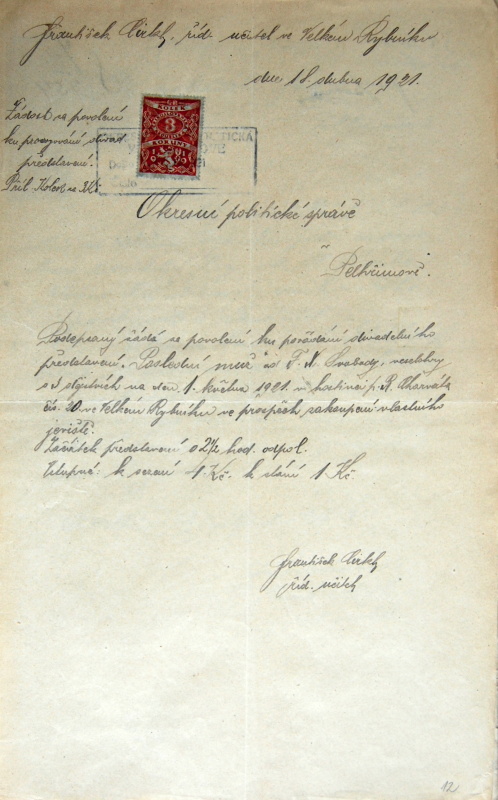 František , říd. učitel ve Velkém Rybníku
dne 18. dubna 1921.
Žádost za povolení
ku provozování divad.
představení.
Příl. Kolek za 3 Kč
KOLEK
3
KORUNY
Okresní politické správě
v Pelhřimově.
Podepsaný žádá za povolení ku pořádání divadelního
představení. Poslední muž od F. X. Svobody, veselohry
o 3 dějstvích na den 1. května 1921 v hostinci p. R. Charváta
čís. 20 ve Velkém Rybníku ve prospěch zakoupení vlastního
jeviště.
Začátek představení o 2½ hod. odpol.
Vstupné: k sezení 4 Kč. k stání 1 Kč.
František
říd. učitel
12